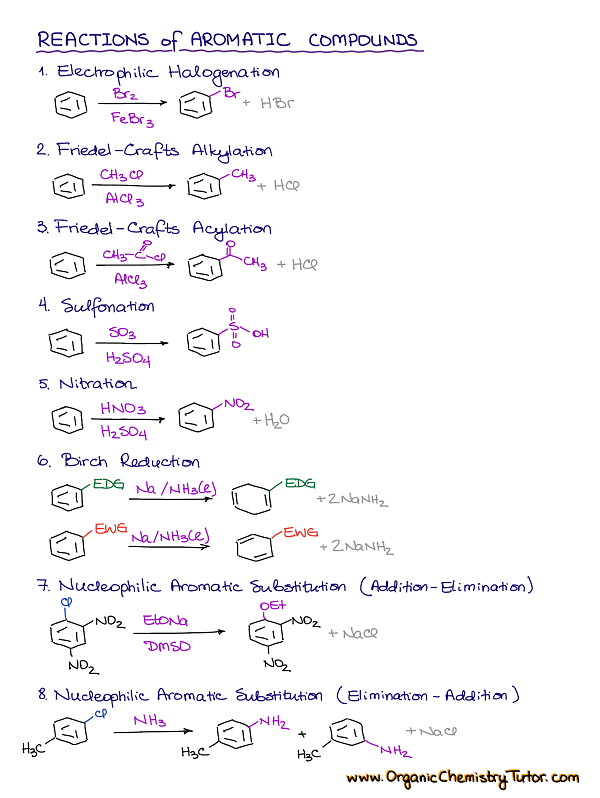 REACTIONS of AROMATIC COMPOUNDS
1. Electrophilic Halogenation
Br2
FeBr3
Br
+ HBr
2. Friedel-Crafts Alkylation
CH3Cl
AlCl3
CH3
+ HCl
3. Friedel-Crafts Acylation
O
CH3 Cl
AlCl3
O
CH3
+ HCl
4. Sulfonation
SO3
H2SO4
O
S
OH
O
5. Nitration
HNO3
H2SO4
NO2
+ H2O
6. Birch Reduction
EDG
Na/NH3(l)
EDG
+ 2NaNH2
EWG
Na/NH3(l)
EWG
+ 2NaNH2
7. Nucleophilic Aromatic Substitution (Addition-Elimination)
Cl
NO2
NO2
EtONa
DMSO
OEt
NO2
NO2
+ NaCl
8. Nucleophilic Aromatic Substitution (Elimination-Addition)
Cl
H3C
NH3
NH2
H3C
+
H3C
NH2
+ NaCl
www.OrganicChemistryTutor.com